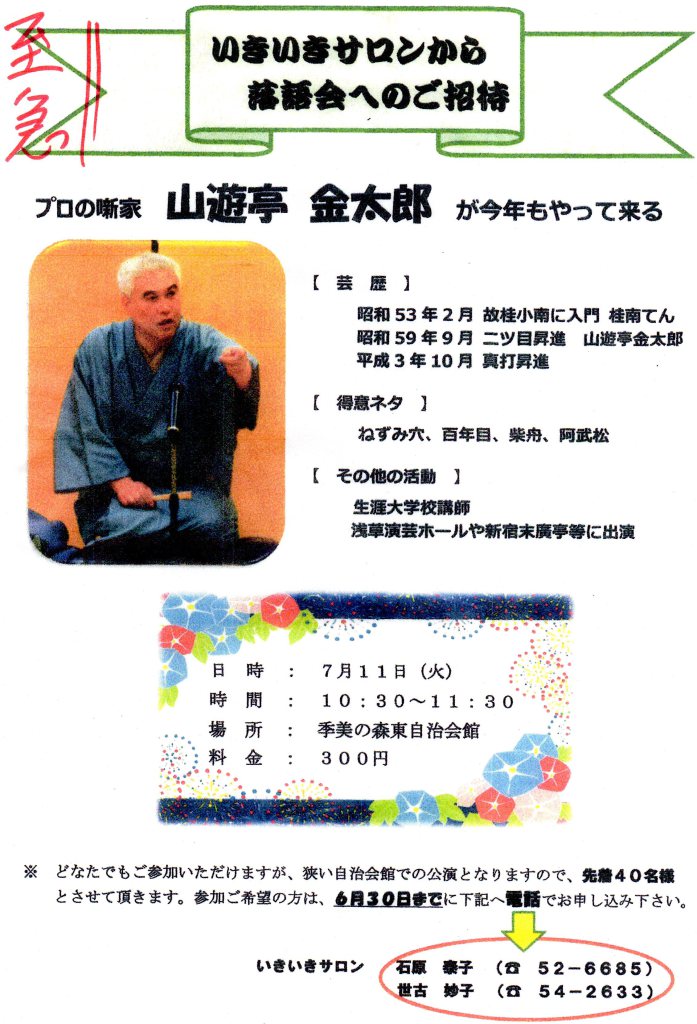 至急
いきいきサロンから
落語会へのご招待
プロの噺家 山遊亭 金太郎 が今年もやって来る
【 芸 歴 】
昭和53年2月 故桂小南に入門 桂南てん
昭和59年9月 二ツ目昇進 山遊亭金太郎
平成3年10月 真打昇進
【 得意ネタ 】
ねずみ穴、百年目、柴舟、阿武松
【 その他の活動 】
生涯大学校講師
浅草演芸ホールや新宿末廣亭等に出演
日 時 : 7月11日(火)
時 間 : 10:30~11:30
場 所 : 季美の森東自治会館
料 金 : 300円
※ どなたでもご参加いただけますが、狭い自治会館での公演となりますので、先着40名様
とさせて頂きます。参加ご希望の方は、6月30日までに下記へ電話でお申し込み下さい。
いきいきサロン 石原 泰子 (☎ 52-6685)
世古 妙子 (☎ 54-2633)